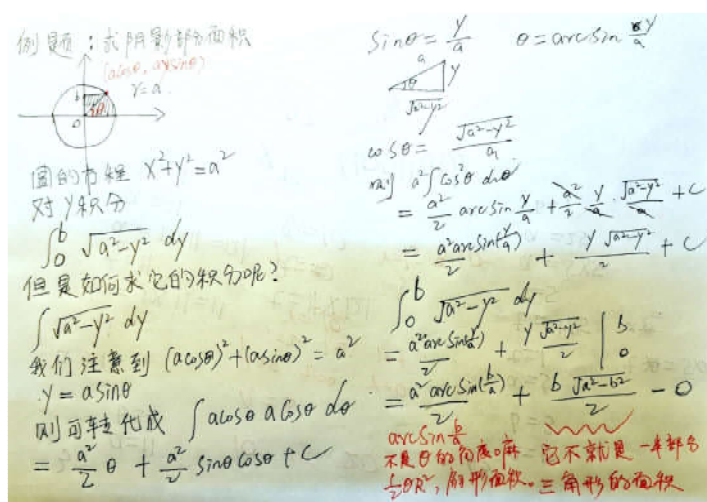 例题：求阴影部分面积
(acosθ, asinθ)
r=a
b
θ
0
圆的方程 x²+y²=a²
对y积分
∫₀ᵇ √(a²-y²) dy
但是如何求它的积分呢？
∫√(a²-y²) dy
我们注意到 (acosθ)²+(asinθ)²=a²
y=asinθ
则可转化成 ∫acosθ acosθ dθ
= a²/2 θ + a²/2 sinθcosθ+C
sinθ = y/a θ=arcsin y/a
a
y
θ
√(a²-y²)
cosθ= √(a²-y²)/a
则 a²∫cos²θ dθ
= a²/2 arcsin y/a + a²/2 y/a · √(a²-y²)/a + C
= a²arcsin(y/a)/2 + y√(a²-y²)/2 + C
∫₀ᵇ √(a²-y²) dy
= a²arcsin(y/a)/2 + y√(a²-y²)/2 |₀ᵇ
= a²arcsin(b/a)/2 + b√(a²-b²)/2 - 0
arcsin b/a
不是θ的角度嘛 它不就是一半部分
½θR²，扇形面积。三角形的面积